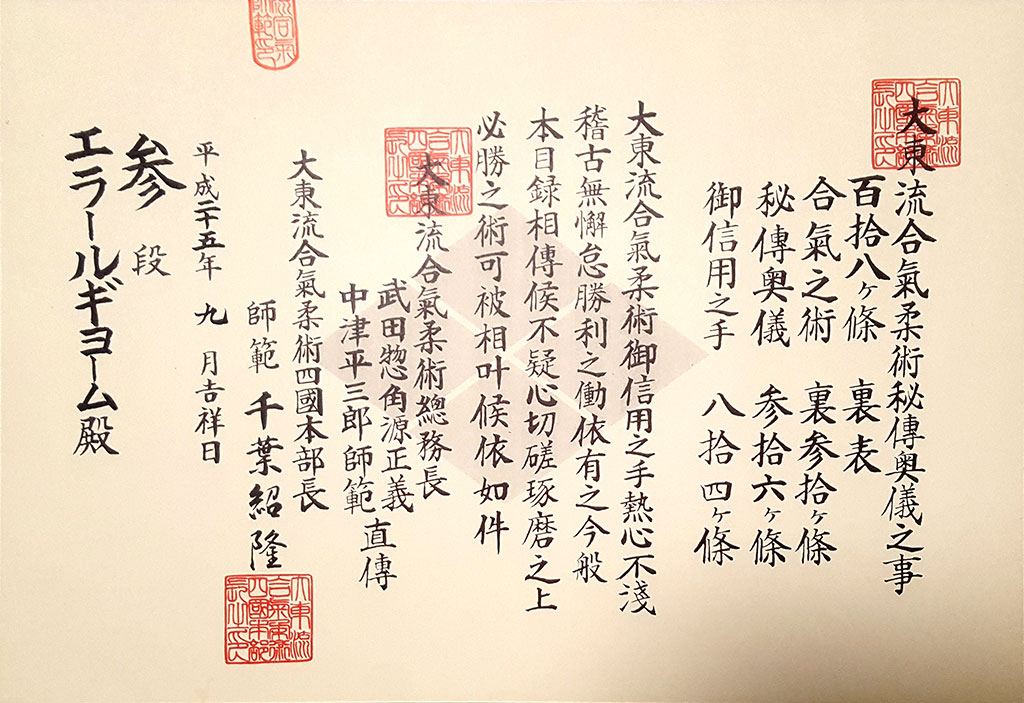 大東流合氣柔術秘傳奥儀之事
百拾八ヶ條 裏表
合氣之術 裏参拾ヶ條
秘傳奥儀 参拾六ヶ條
御信用之手 八拾四ヶ條
大東流合氣柔術御信用之手熱心不淺
稽古無懈怠勝利之働依有之今般
本目録相傳候不疑心切磋琢磨之上
必勝之術可被相叶候依如件
大東流合氣柔術總務長
武田惣角源正義
中津平三郎師範
直傳
大東流合氣柔術四國本部長
師範 千葉紹隆
平成二十五年 九 月吉祥日
参 段
エラールギヨーム殿
大東流合氣柔術四國本部長之印
大東流合氣柔術四國本部長之印
大東流合氣柔術四國本部長之印